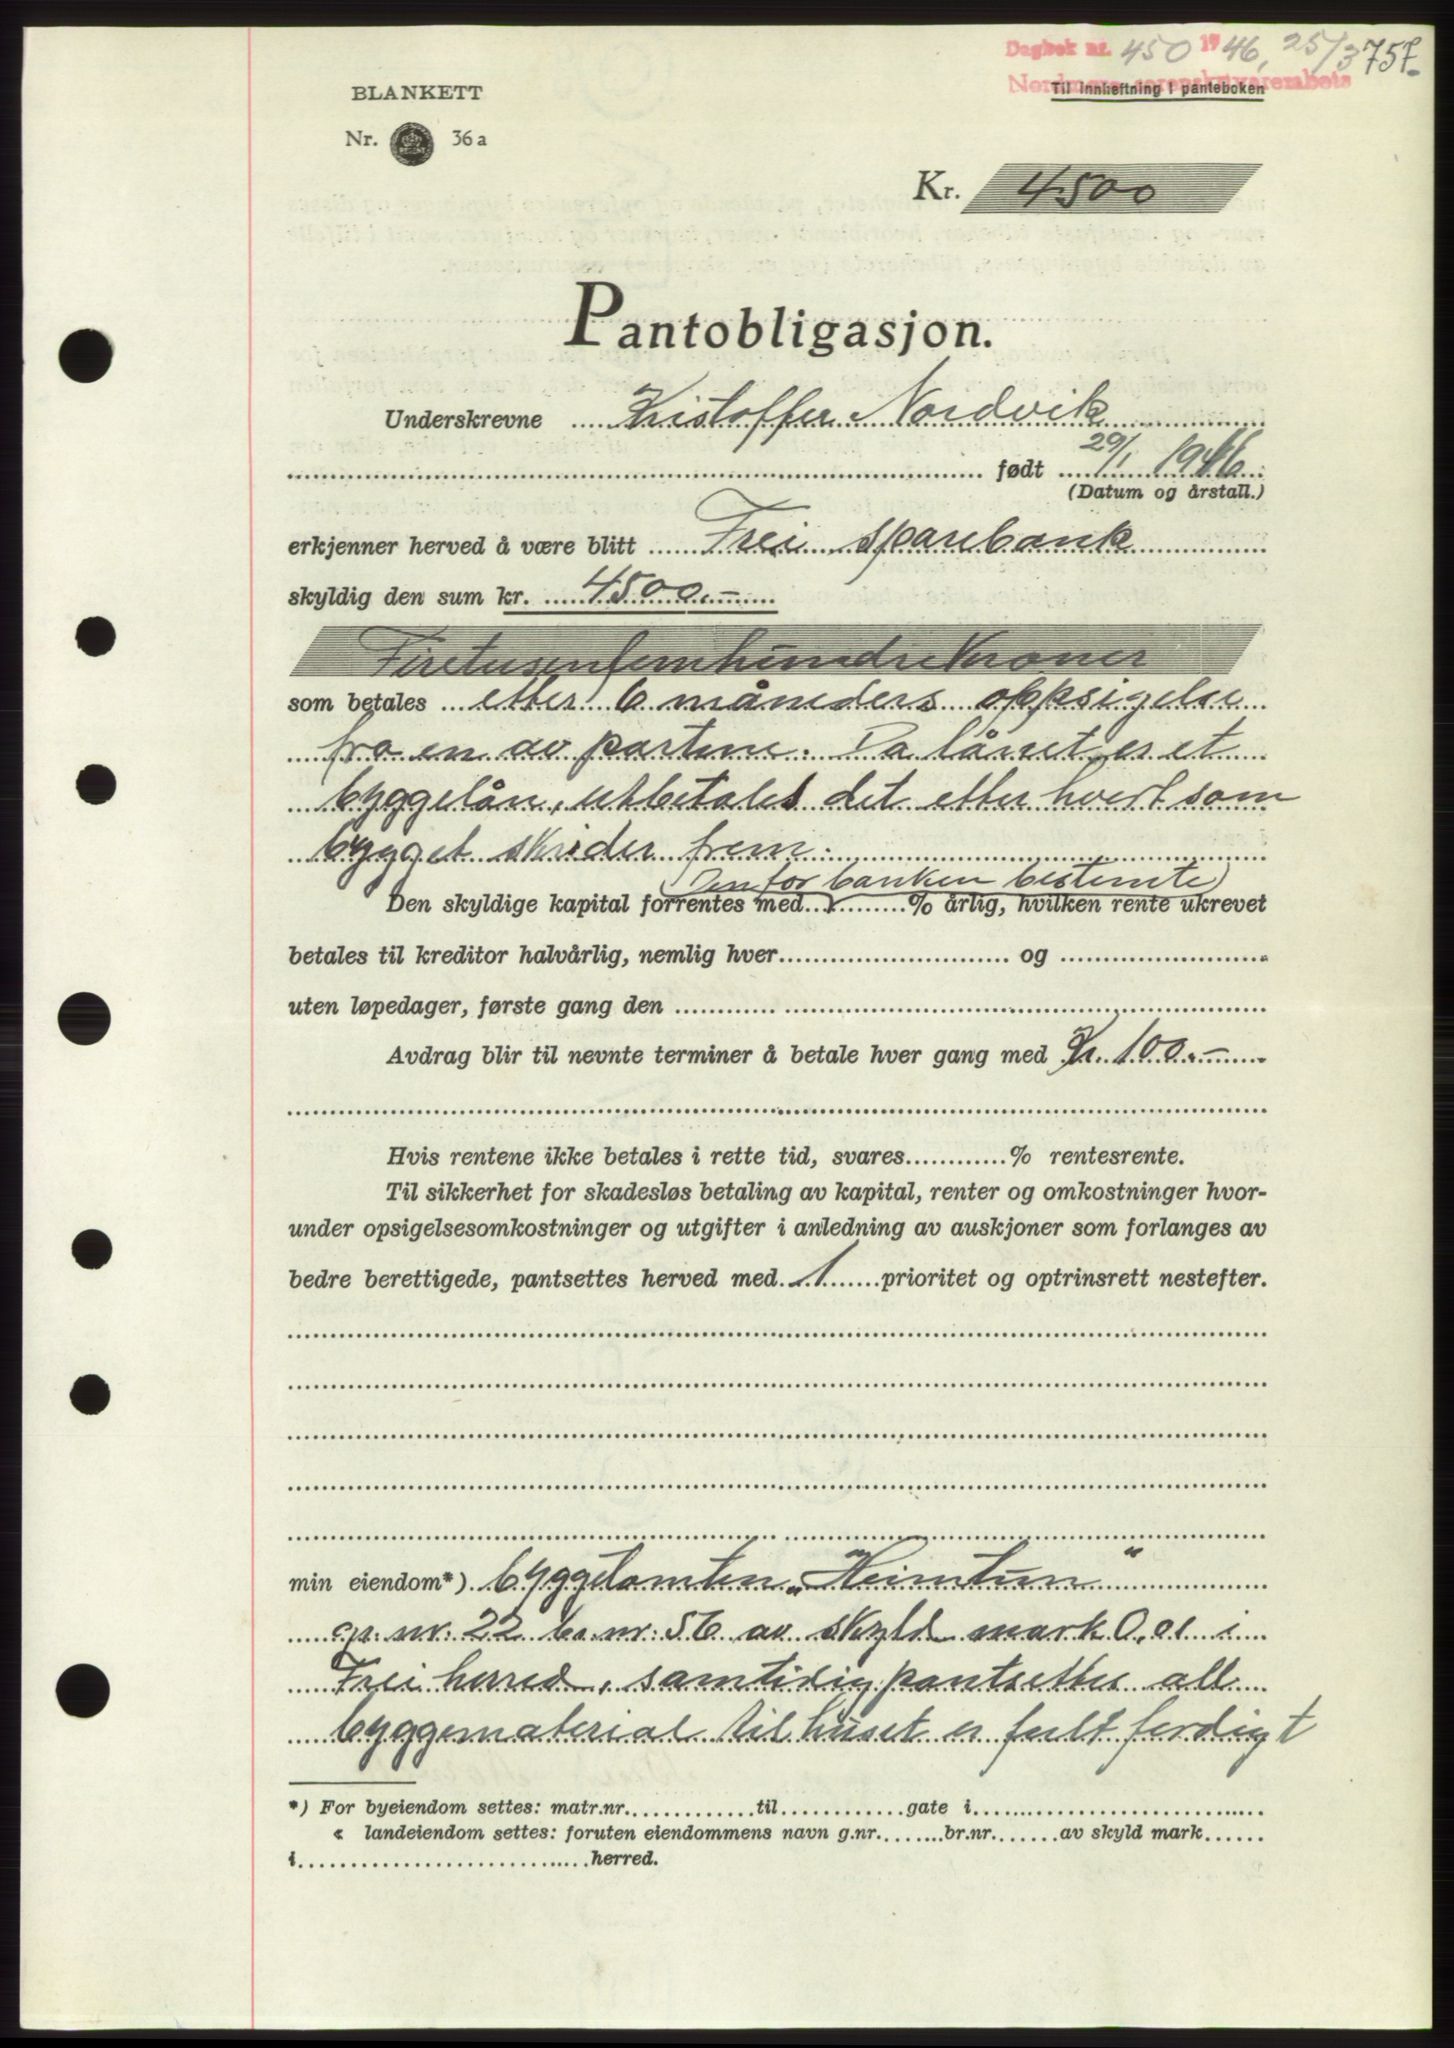 Dagbok nr. 450 1946, 25/3 757.
Nordmøre sorenskriverembete
Til innheftning i panteboken
BLANKETT
Nr. 36 a
Kr. 4500
Pantobligasjon.
Underskrevne Kristoffer Nordvik
født 29/1 1946
(Datum og årstall.)
erkjenner herved å være blitt Frei sparebank
skyldig den sum kr. 4500.-
Firetusenfemhundre Kroner
som betales etter 6 måneders oppsigelse
fra en av partene. Da lånet er et
byggelån, utbetales det etter hvert som
bygget skrider frem.
(Den for banken bestemte)
Den skyldige kapital forrentes med % årlig, hvilken rente ukrevet
betales til kreditor halvårlig, nemlig hver og
uten løpedager, første gang den
Avdrag blir til nevnte terminer å betale hver gang med Kr. 100.-
Hvis rentene ikke betales i rette tid, svares % rentesrente.
Til sikkerhet for skadesløs betaling av kapital, renter og omkostninger hvor-
under opsigelsesomkostninger og utgifter i anledning av auskjoner som forlanges av
bedre berettigede, pantsettes herved med 1 prioritet og optrinsrett nestefter.
min eiendom*) byggetomten „Heimtun“
gr. nr. 22 br. nr. 56 av skyld mark 0,01 i
Frei herred, samtidig pantsettes all
byggematerial til huset er fullt ferdigt
*) For byeiendom settes: matr.nr. til gate i
« landeiendom settes: foruten eiendommens navn g.nr. br.nr. av skyld mark
i herred.